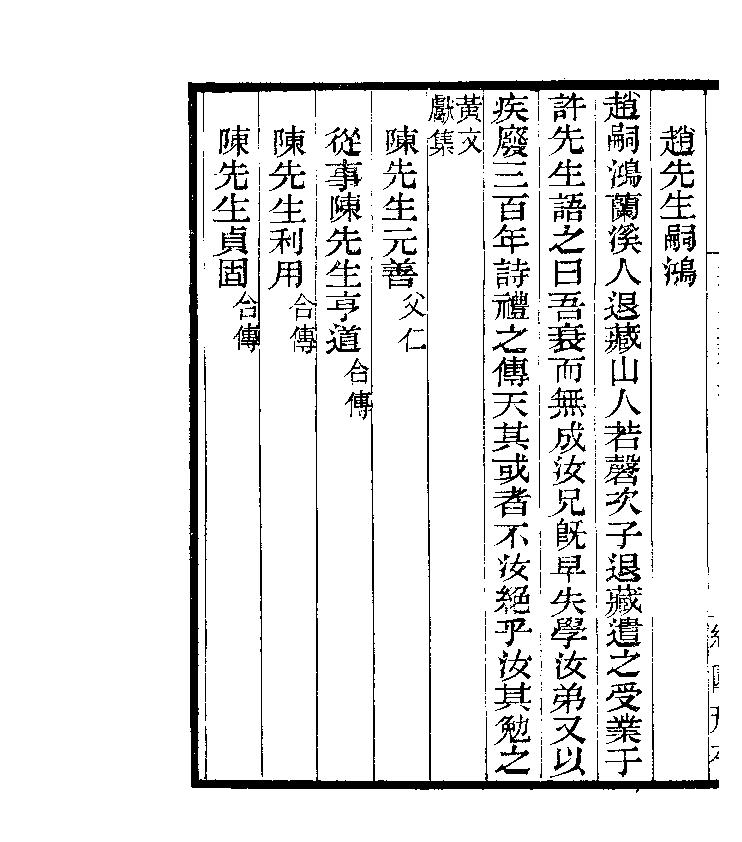 趙先生嗣鴻
趙嗣鴻蘭溪人退藏山人若磬次子退藏遣之受業于
許先生語之曰吾衰而無成汝兄旣早失學汝弟又以
疾廢三百年詩禮之傳天其或者不汝絕乎汝其勉之
黃文
獻集
陳先生元善父仁
從事陳先生亨道合傳
陳先生利用合傳
陳先生貞固合傳